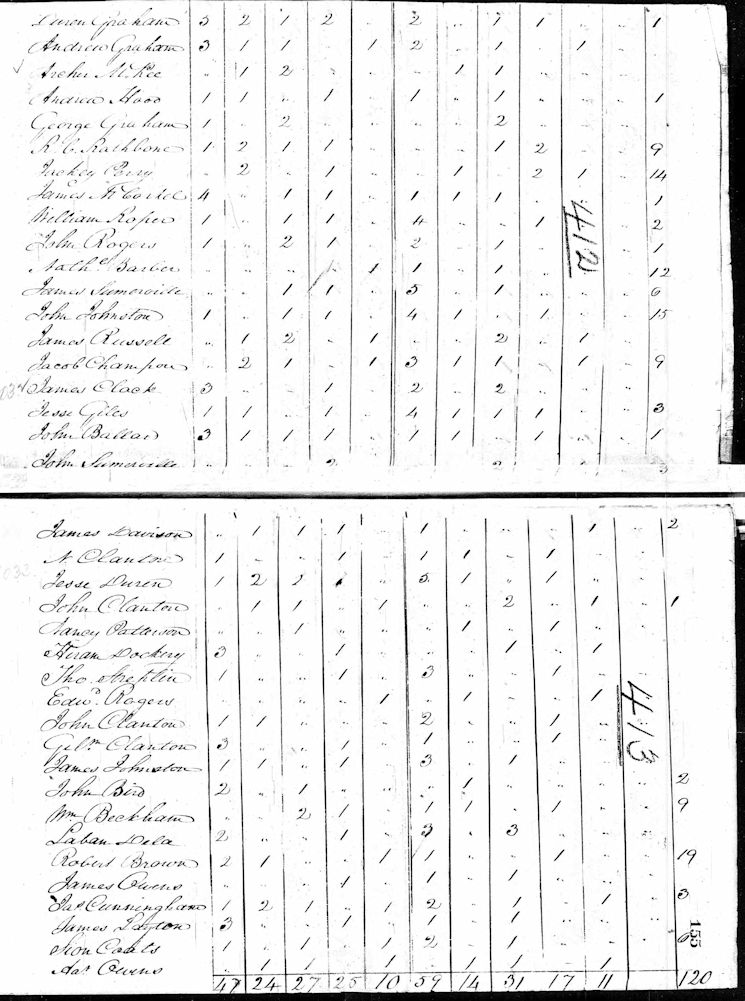 Graham 3 2 1 2 " 2 " 1 1 " " 1
Andrew Graham 3 1 1 " 1 2 " 1 " 1 "
Archer McKee " 1 2 " " " 1 1 " " "
Andrew Hood 1 1 " 1 " 1 " 1 " " " 1
George Graham 1 " 2 " " " " 2 " " "
R. C. Rathbone 1 2 1 1 " " " 1 2 " " 9
Perry " 2 " 1 " " 1 " 2 1 " 14
James McCorkel 4 " 1 1 " 1 1 1 " " " 1
William Roper 1 " 1 1 " 4 " " 1 " " 2
412
John Rogers 1 " 2 1 " 2 " 1 " " " 1
Nathl. Barber " " " " 1 1 " 1 " " " 12
James Sumerville " " 1 1 " 5 " 1 " " " 6
John Johnston 1 " 1 1 " 4 1 " 1 " " 15
James Russell " 1 2 " 1 " " 2 " 1 "
Jacob Champion " 2 1 " 1 3 1 1 1 1 " 9
James Clack 3 " " 1 " 2 " 2 " " "
Jesse Giles 1 1 " 1 " 4 1 1 1 " " 3
John Ballard 3 1 1 1 " 1 1 " 1 " " 1
John Sumerville " " " 2 " " " 2 " " "
James Davison " 1 1 1 " 1 " " " 1 " 2
N. Clanton 1 " " 1 " 1 1 " 1 " "
Jesse Duren 1 2 1 " " 5 1 " 1 " "
John Clanton " 1 1 " 1 " " 2 " 1 " 1
Nancy Patterson " " 1 " " " 1 " 1 " "
Hiram Dockery 3 " " 1 " " " 1 " 1 "
Tho. 1 " " 1 " 3 " " 1 " "
Edwd. Rogers " " " " 1 " 1 " " 1 "
413
John Clanton 1 1 " " " 2 " " 1 " "
Clanton 3 " " 1 " 1 " " 1 " "
James Johnston 1 1 " 1 " 3 " 1 " " "
John Bird 2 " 1 " " " 1 " " " " 2
Wm Beckham " " 2 1 " 1 1 " 1 " " 9
Laban 2 " " 1 " 3 " 3 " " "
Robert Brown 2 1 " " 1 1 " 1 " 1 " 19
James Owens " " " 1 " 1 " 1 " " "
Jas. Cunningham 1 2 1 " 1 2 " 1 " 1 " 3
James Layton 3 " " 1 " 1 " 1 " " "
155
Sion Coats 1 " 1 " 1 2 " 1 " 1 " 6
Owens " 1 1 " 1 " " 1 " 1
47 24 27 25 10 59 14 31 17 11 120